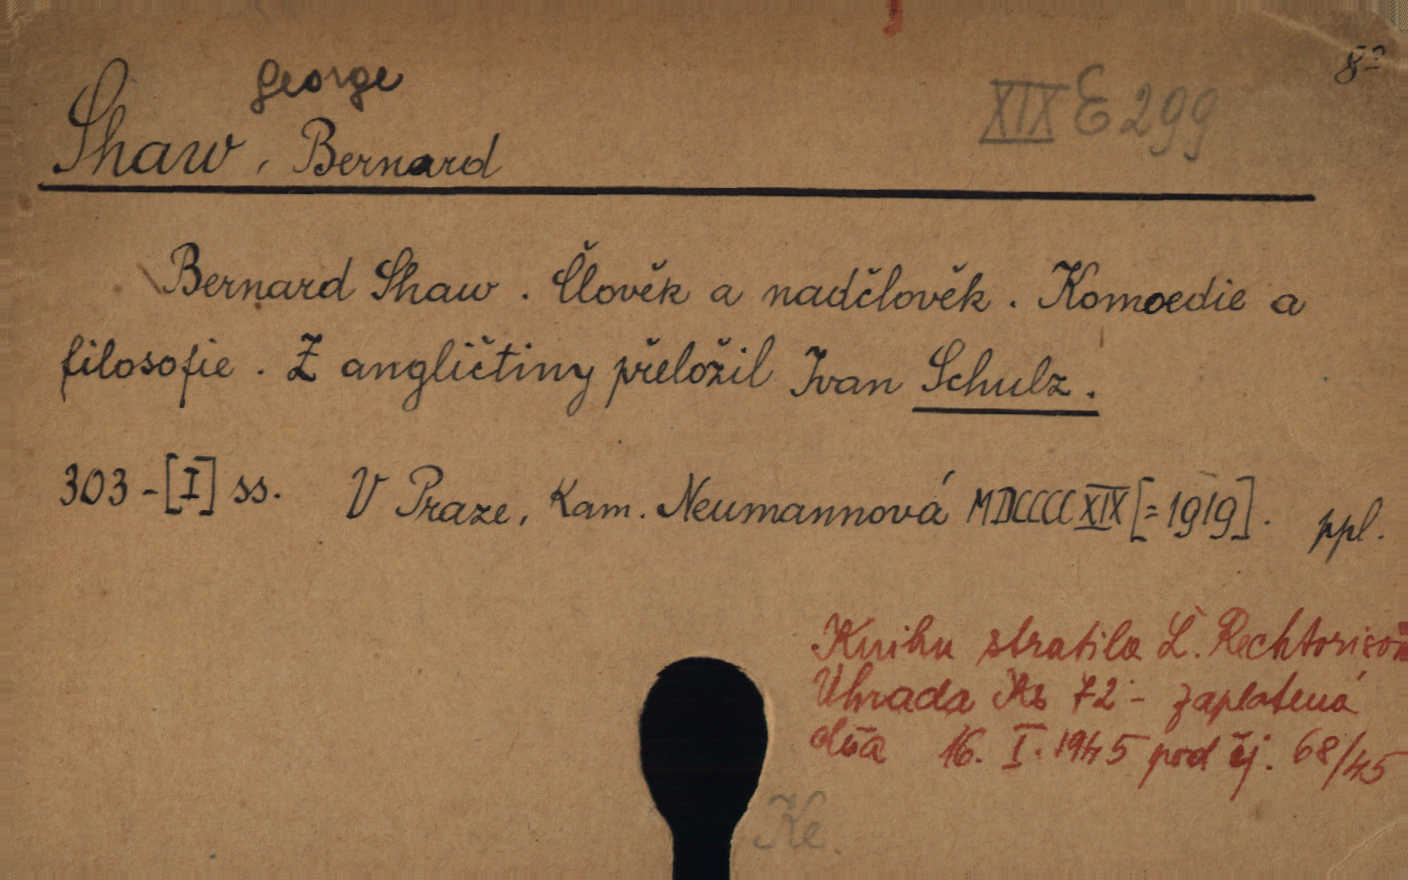 8º
George
XIX E 299
Shaw, Bernard
Bernard Shaw. Člověk a nadčlověk. Komoedie a
filosofie. Z angličtiny přeložil Ivan Schulz.
303-[I] ss. V Praze, Kam. Neumannová MDCCCCXIX [=1919]. ppl.
Knihu stratila L. Rechtorisová
Úhrada Ks 72 - zaplatená
dňa 16. I. 1945 pod čj. 68/45
Ke.